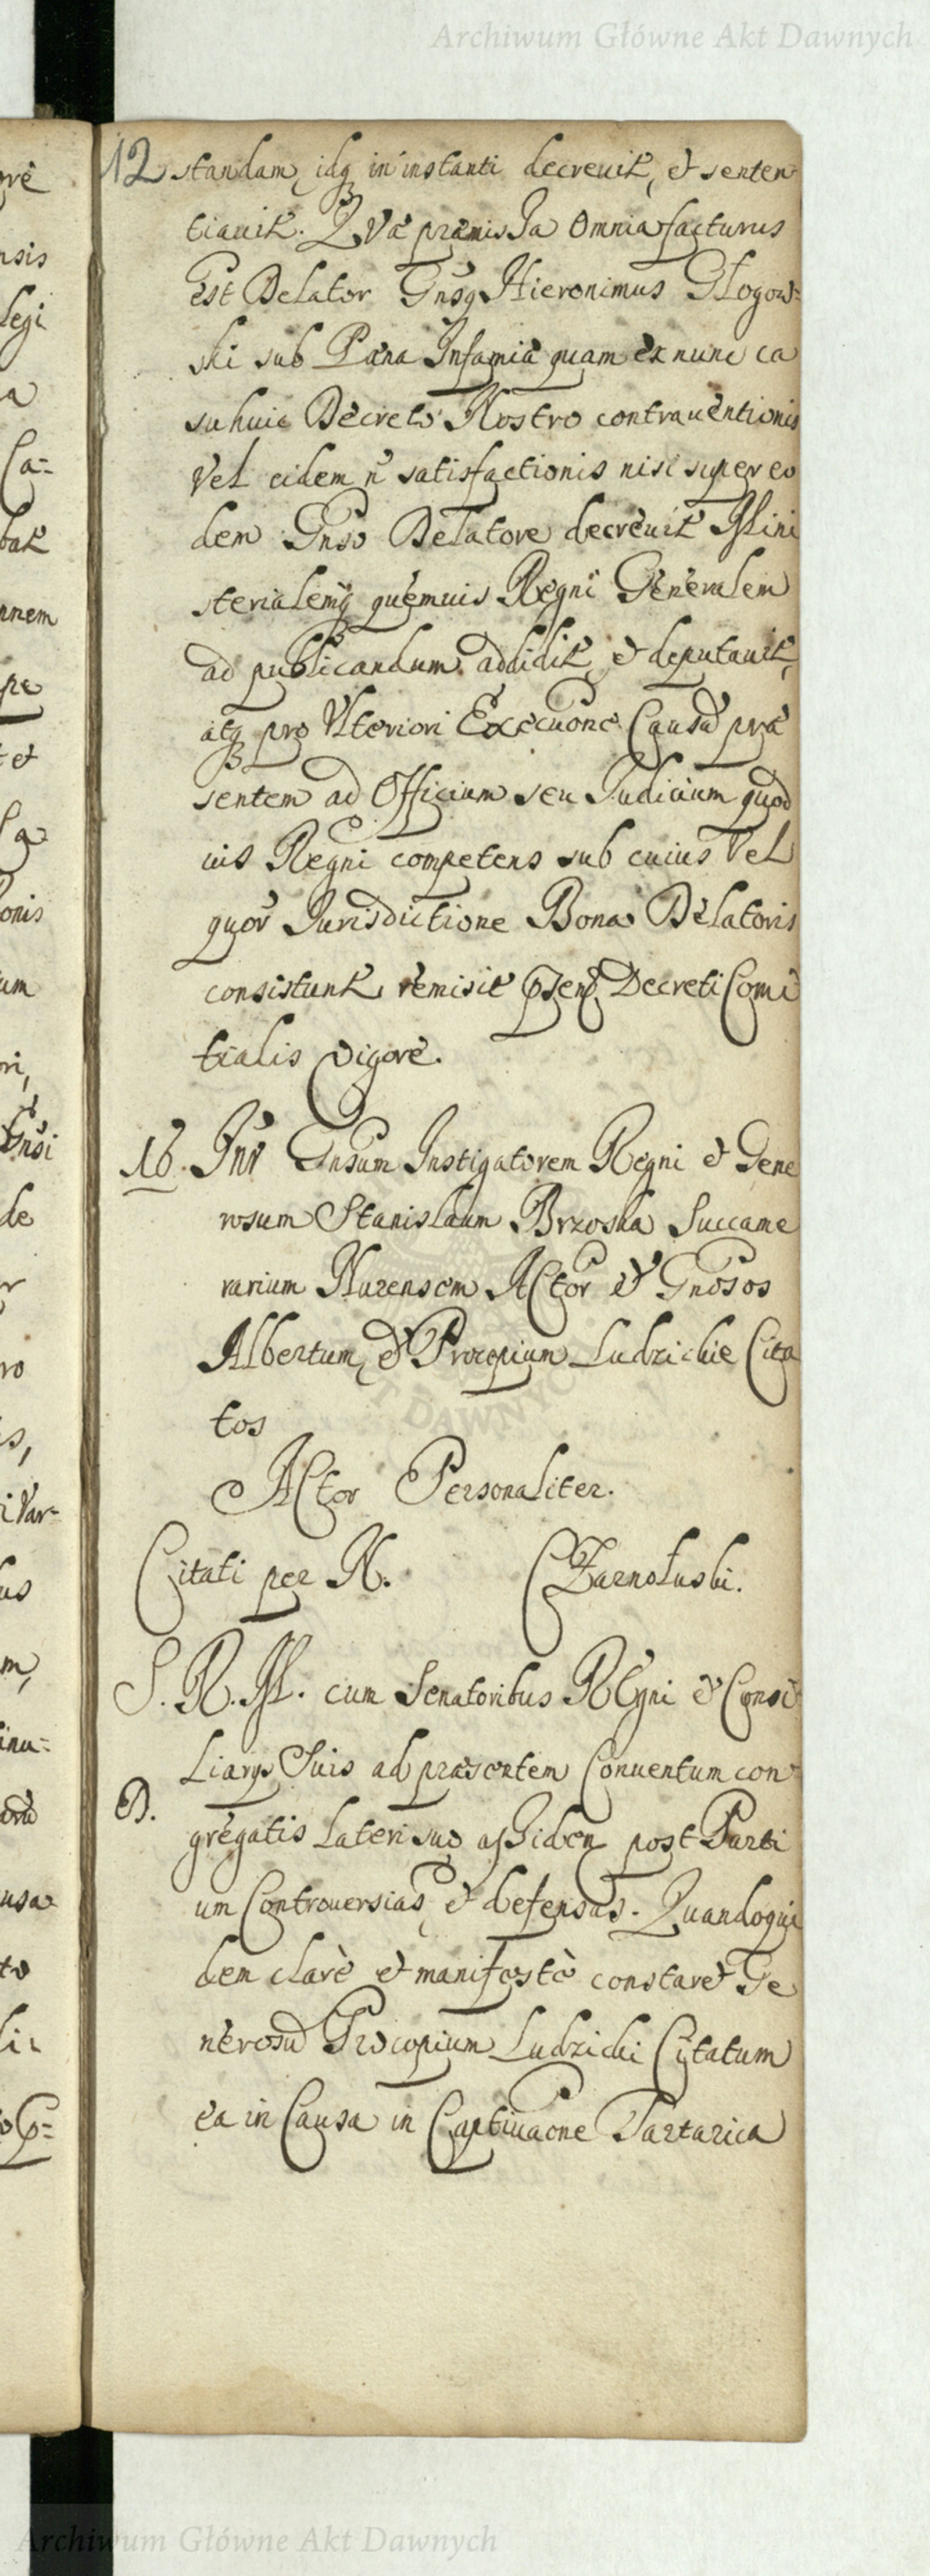 Archiwum Główne Akt Dawnych
12 standam, idq in instanti decrevit, et senten
tiavit. Qvæ præmissa Omnia facturus
Est Delator Gnsq Hieronimus Glogow=
ski sub Pæna Infamiæ quam ex nunc ca
su huic Decreto Nostro contraventionis
vel eidem n satisfactionis nisi super eo
dem Gnso Delatore decrevit Mini
sterialemq quemvis Regni Generalem
ad publicandum addidit, et deputavit,
atq pro Vlteriori Execuone Causã præ
sentem ad Officium seu Judicium quod
vis Regni competens sub cuius vel
quor Jurisdictione Bona Delatoris
consistunt, remisit Decreti Comi
tialis vigore.
16. Int Gnsum Instigatorem Regni et Gene
rosum Stanislaum Brzoska Succame
rarium Nurensem Actor et Gnosos
Albertum, et Procopium Ludzickie Cita
tos
Actor Personaliter.
Citati per N. Czarnoluski.
S. R. M. cum Senatoribus Regni et Consi
D. liarys Suis ad præsentem Conventum con
gregatis Lateri suo assiden post Parti
um Controversias, et defensas. Quandoqui
dem clarè et manifestè constaret Ge
nerosũ Procopium Ludzicki Citatum
ea in Causa in Captivaone Tartarica
Archiwum Główne Akt Dawnych